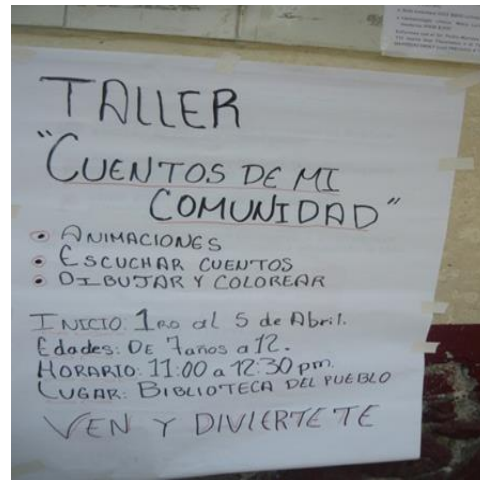 TALLER
"CUENTOS DE MI
COMUNIDAD"
• ANIMACIONES
• ESCUCHAR CUENTOS
• DIBUJAR Y COLOREAR
INICIO: 1RO al 5 de Abril.
Edades: DE 7años a 12.
HORARIO: 11:00 a 12:30 pm.
LUGAR: BIBLIOTECA DEL PUEBLO
VEN Y DIVIERTETE